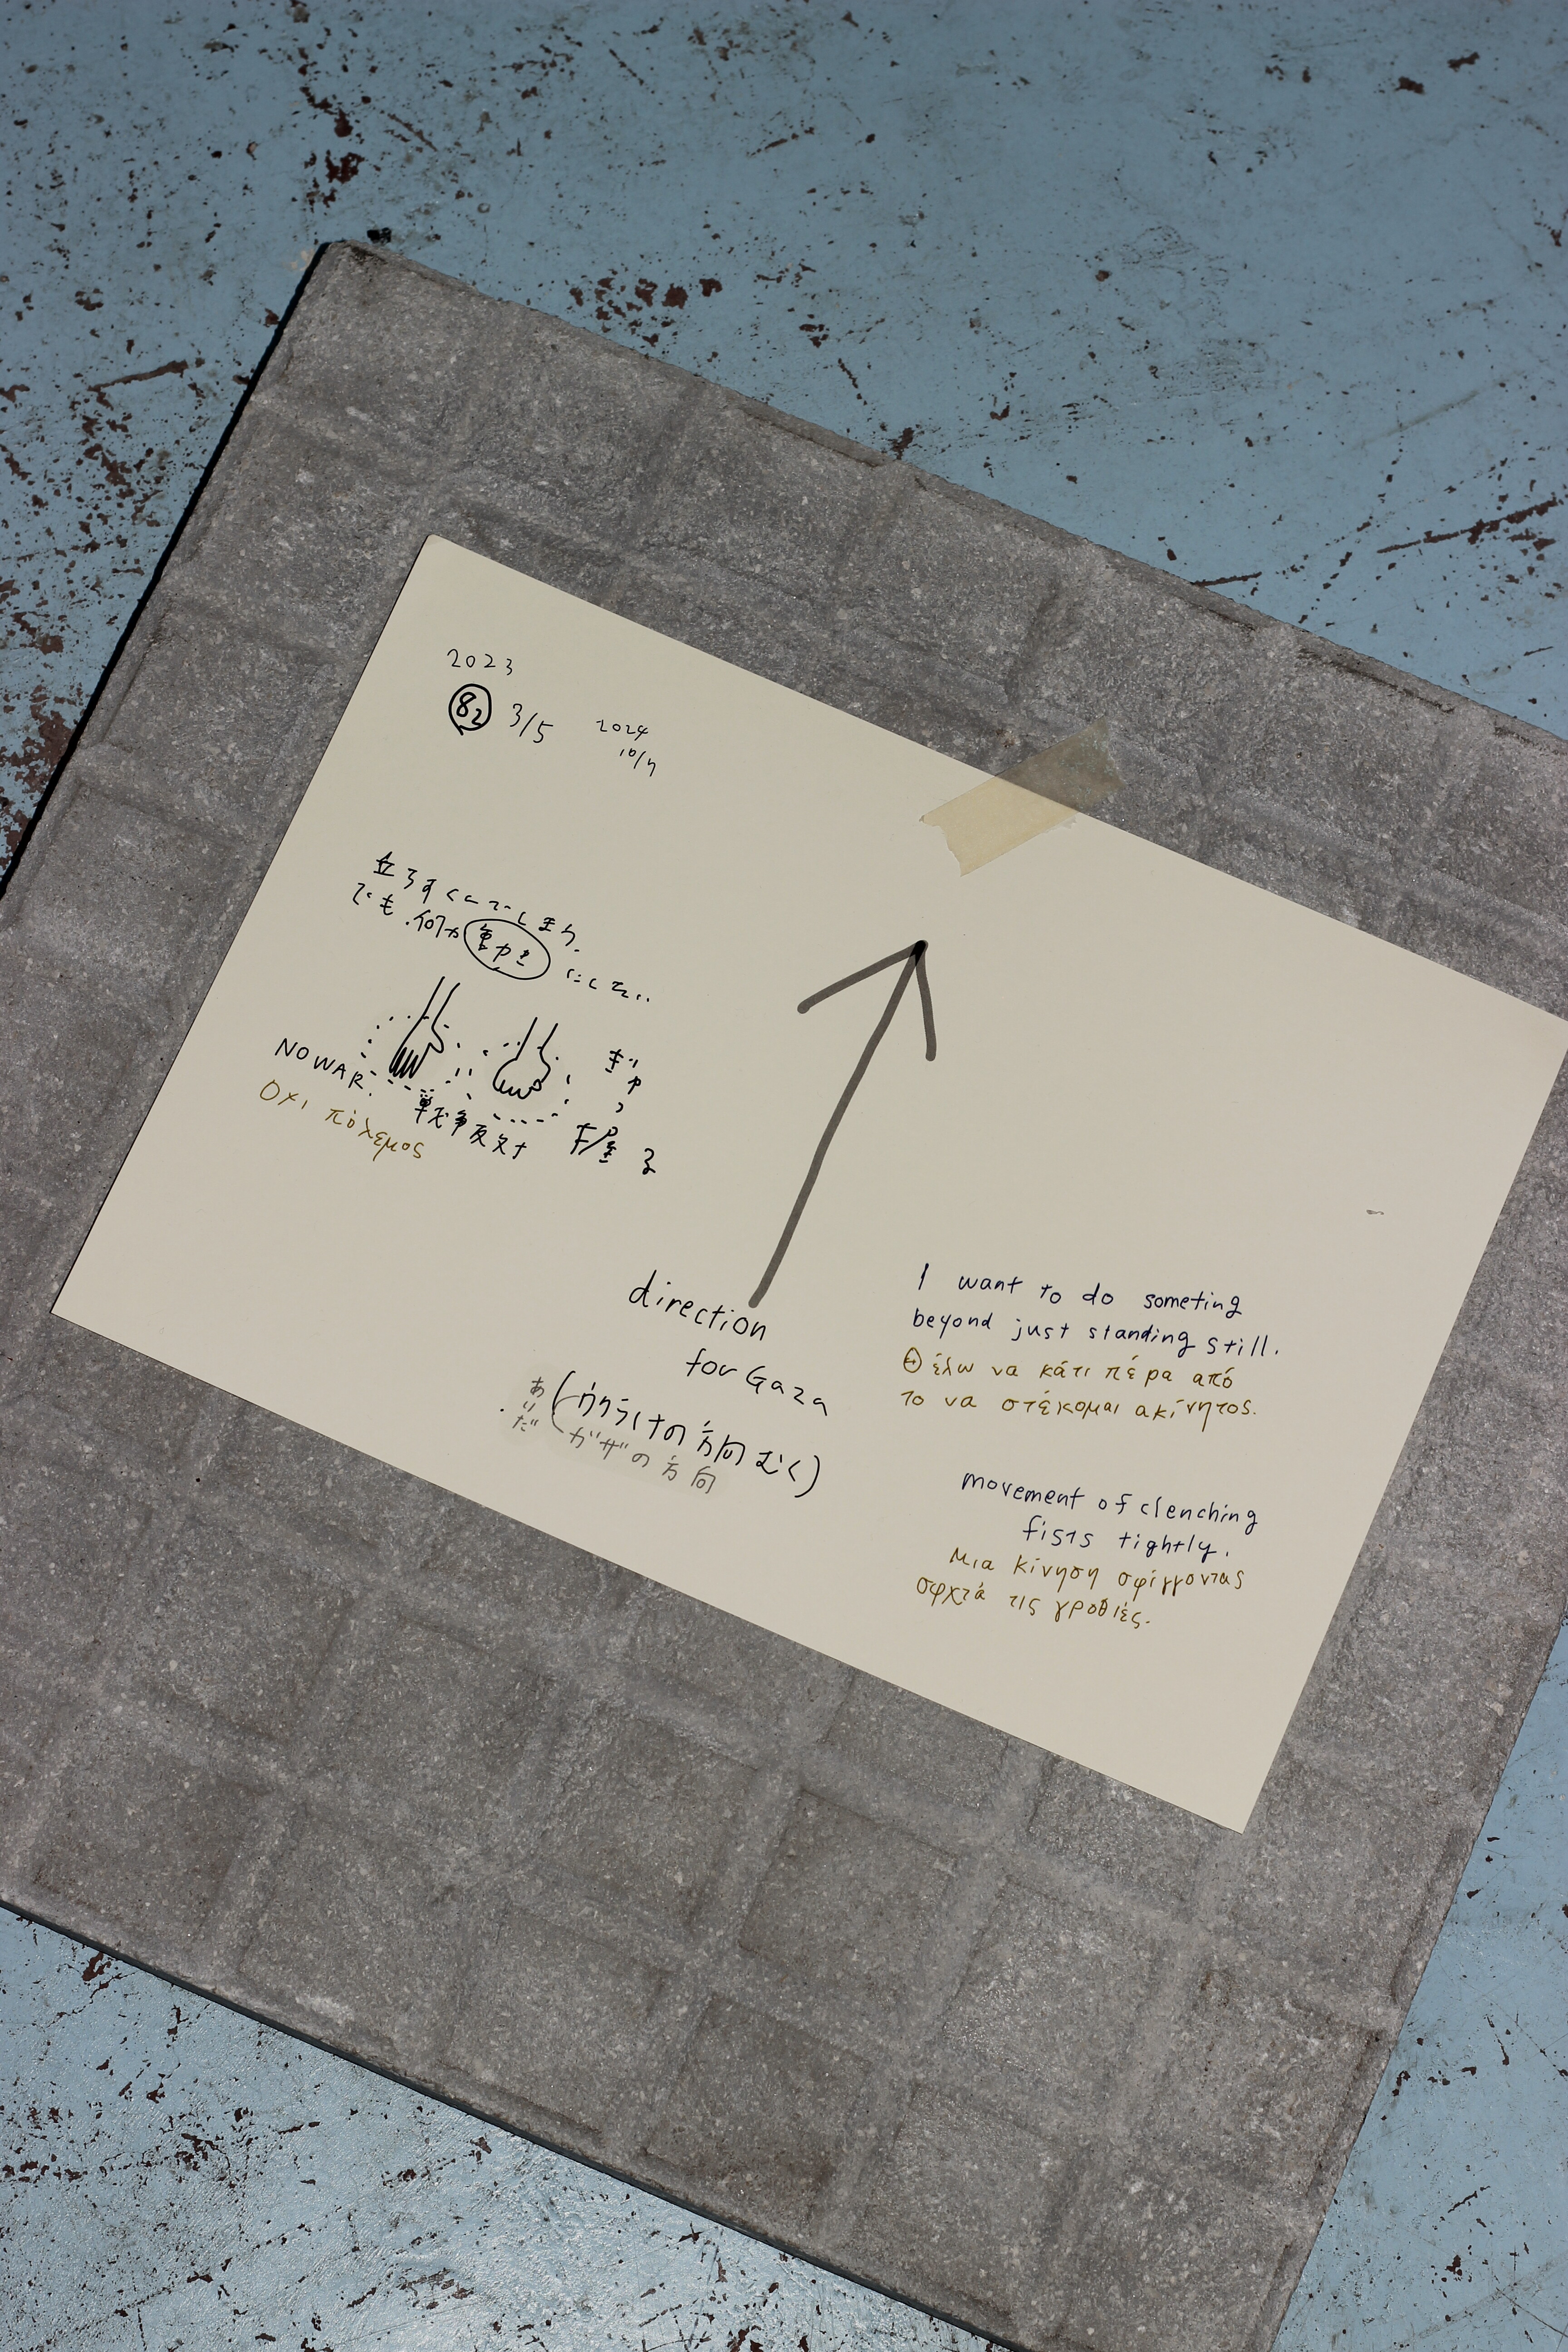 2023
82 3/5
2024
10/7
立ちすくんでしまう。
でも、何か
にしたい..
NO WAR.
Οχι πόλεμος
戦争反対
ぎゅっ
を握る
direction
for Gaza
(ウクライナの方向むく)
ガザの方向
I want to do someting
beyond just standing still.
Θέλω να κάτι πέρα από
το να στέκομαι ακίνητος.
movement of clenching
fists tightly.
Μια κίνηση σφίγγοντας
σφχτά τις γροθιές.